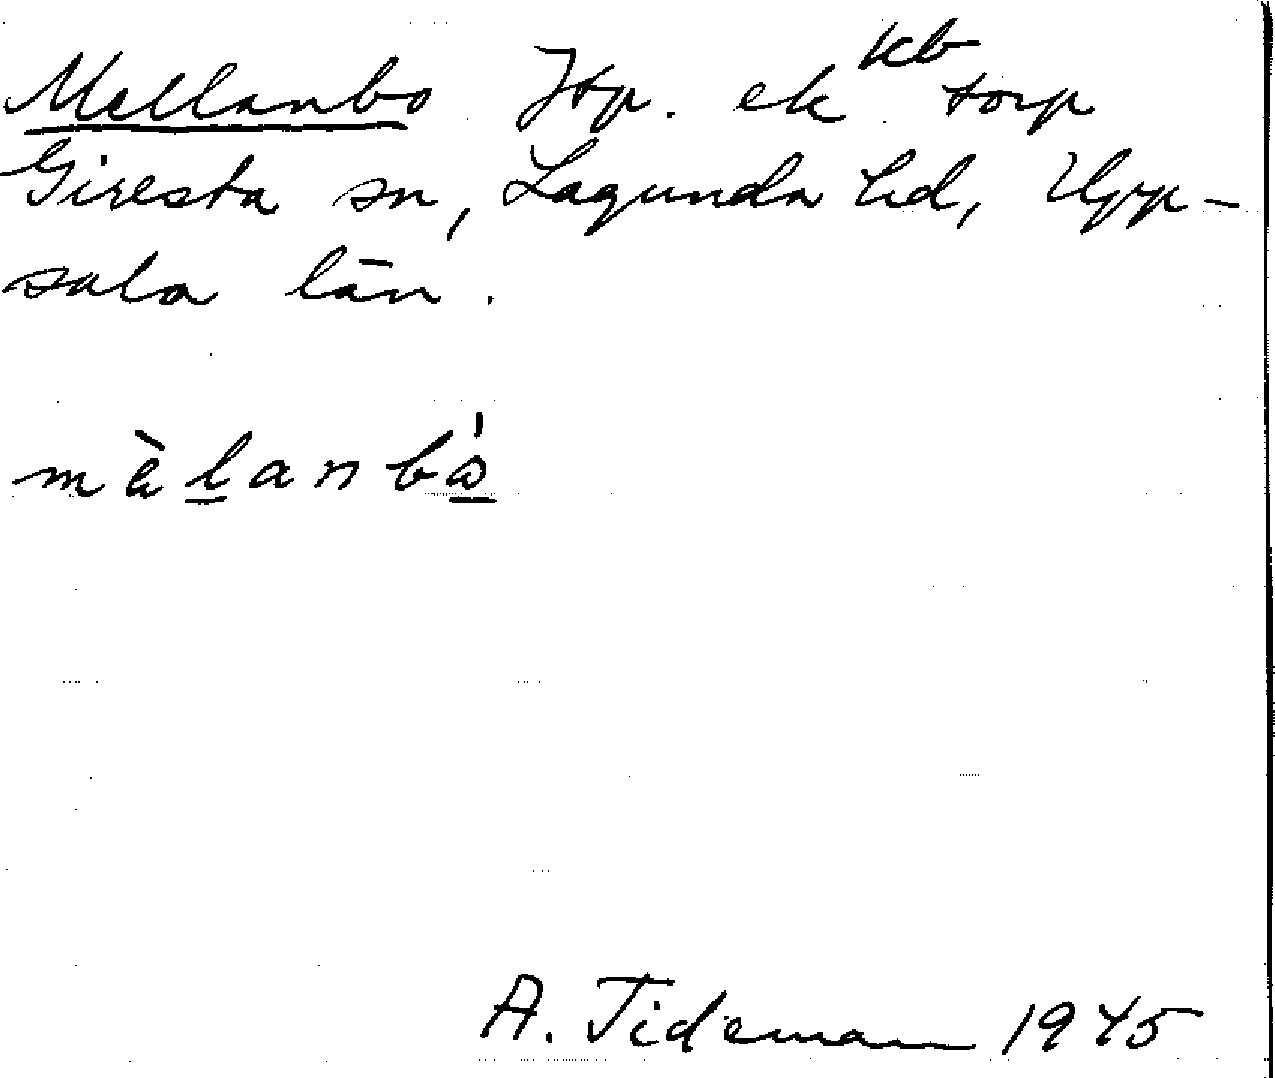 Mellanbo Jtp. ek kb torp
Giresta sn, Lagunda hd, Upp-
sala län.
mὰlanbὼ
A. Tideman 1945